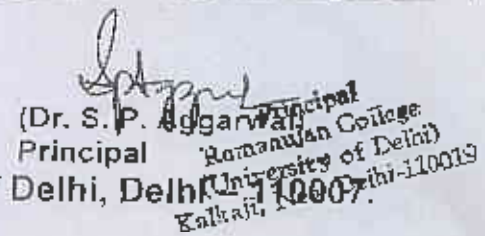 (Dr. S. P. Aggarwal)
Principal
Delhi, Delhi - 110007.
Principal
Ramanujan College
(University of Delhi)
Kalkaji, New Delhi-110019